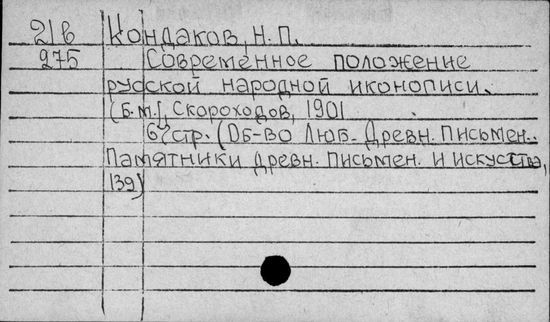 21в Кондаков, Н. П.
275 Современное положение
русской народной иконописи.
(Б.м.), Скороходов, 1901
67стр. (Об-во Люб. Древн. Письмен..
Памятники древн. письмен. и искусства,
139)